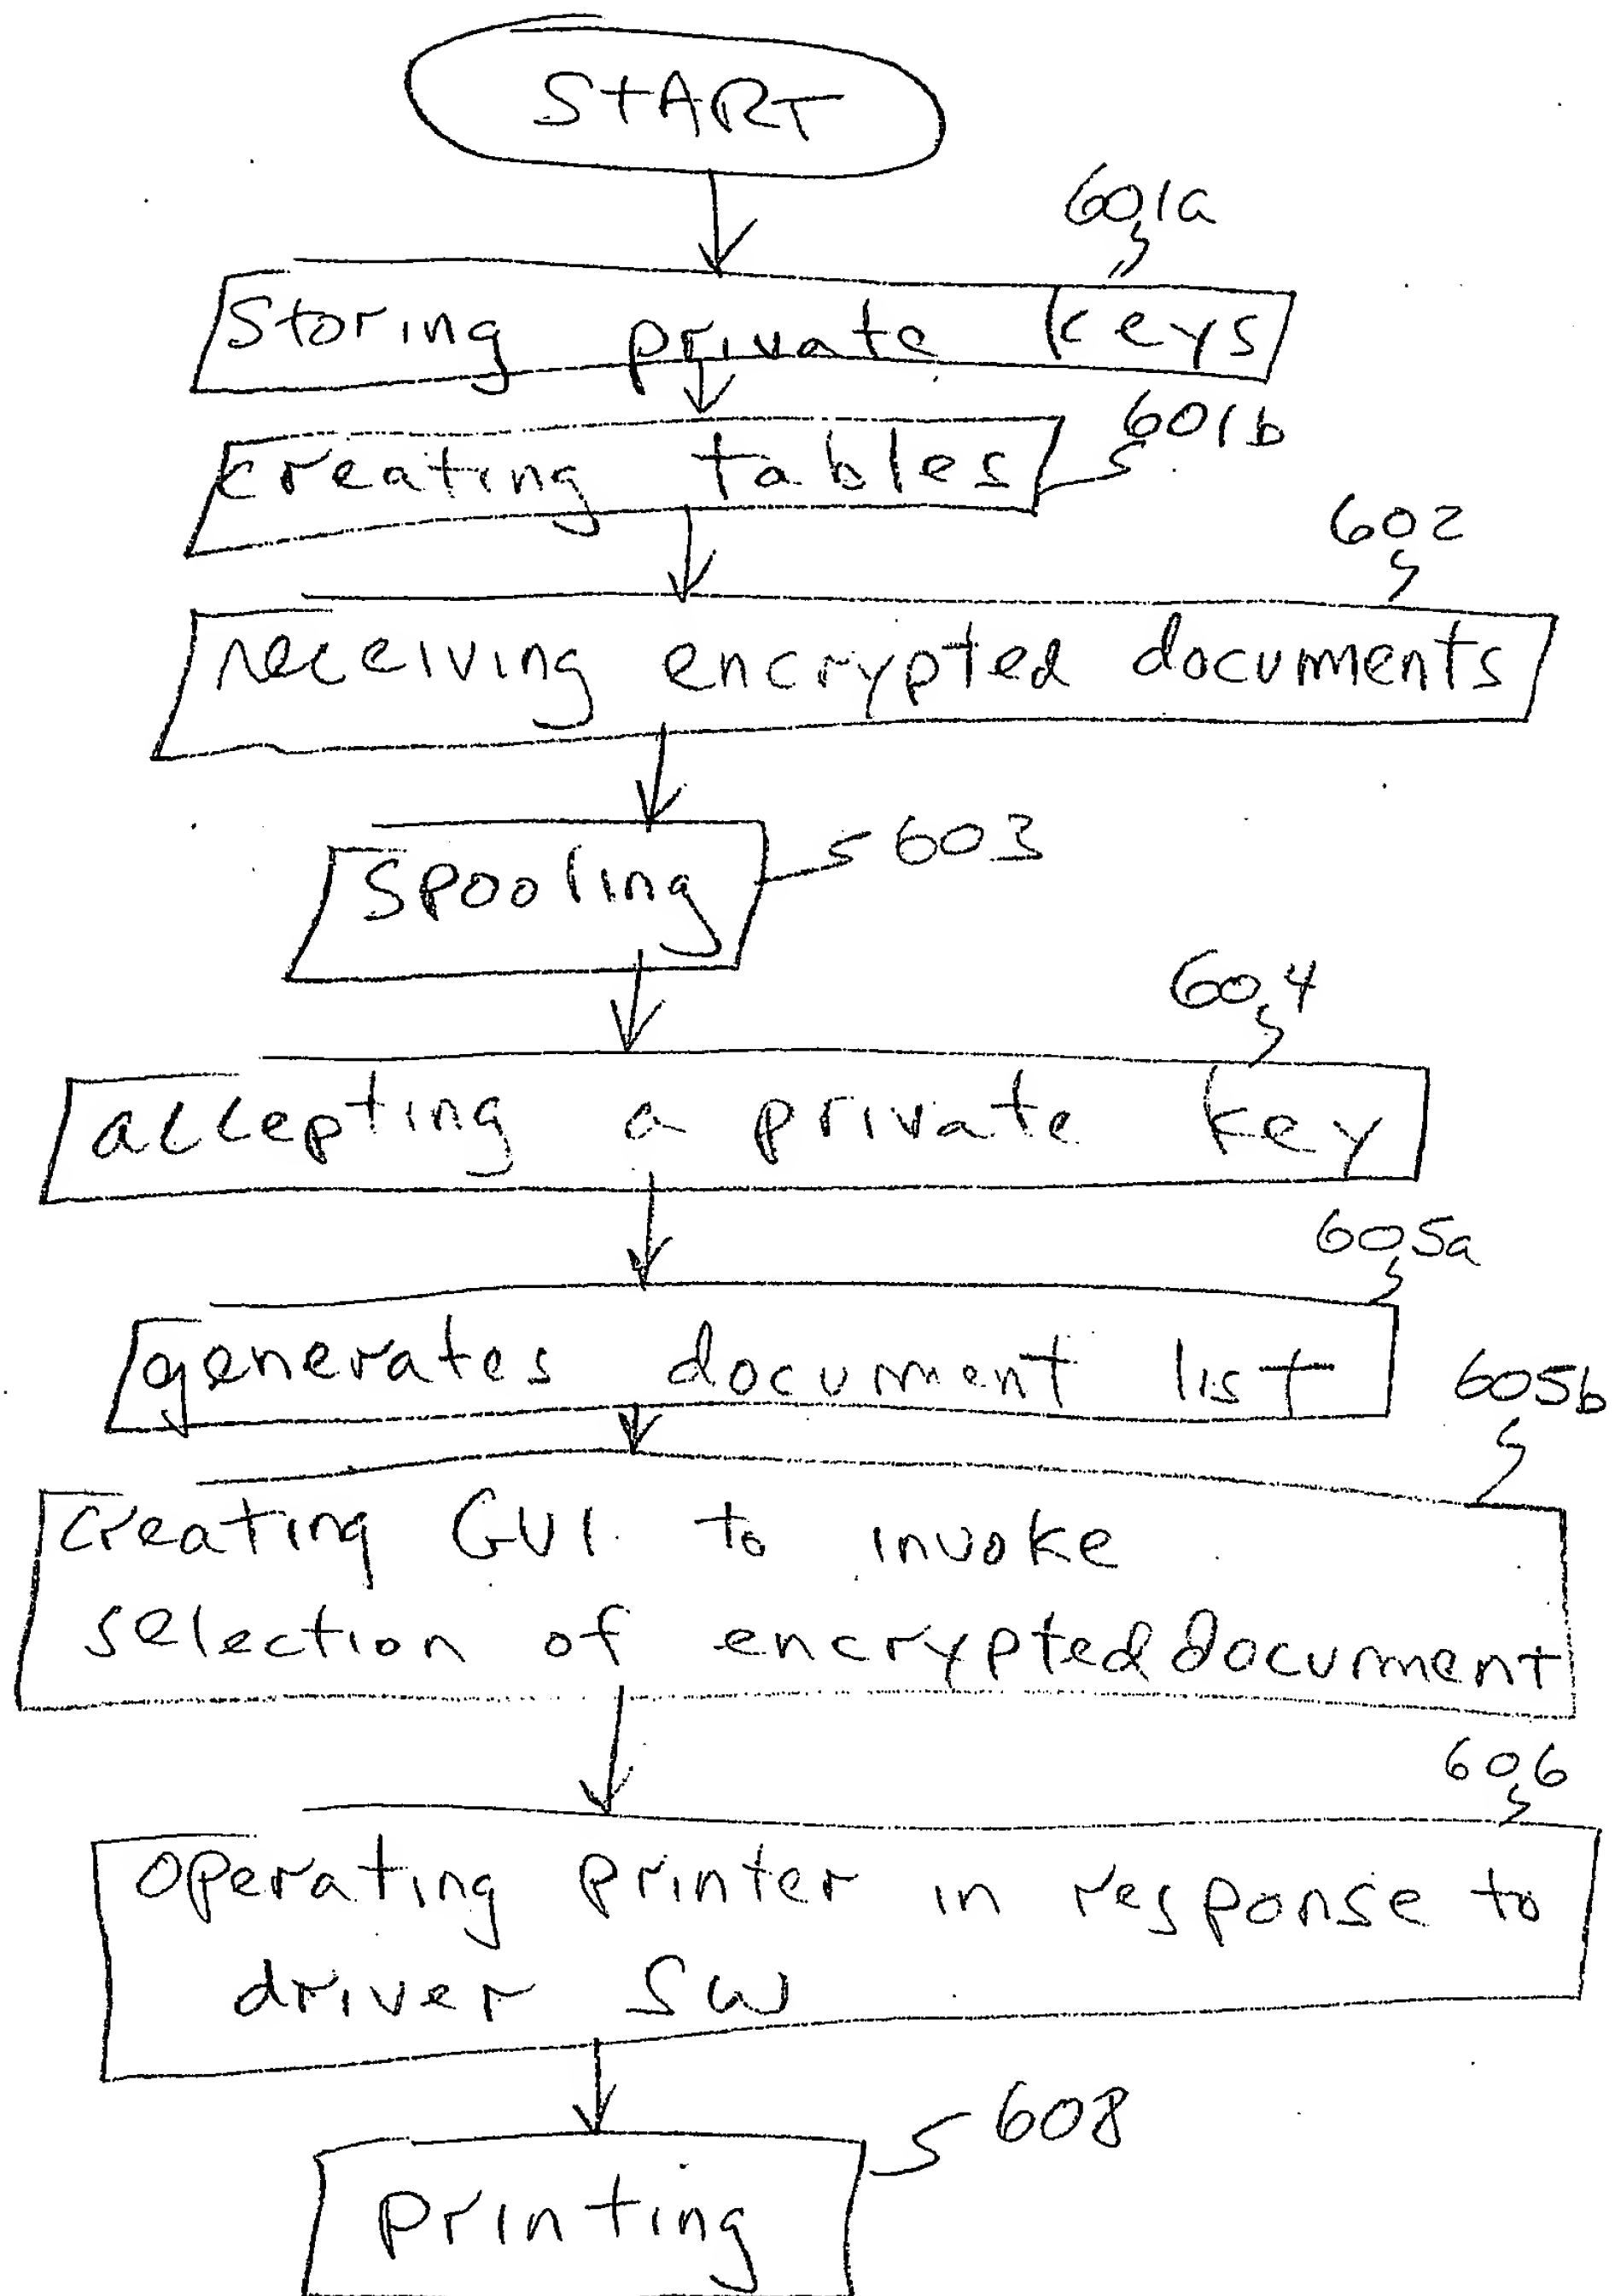 START
601a
Storing private keys
601b
creating tables
602
receiving encrypted documents
603
Spooling
604
accepting a private key
605a
generates document list
605b
creating GUI to invoke
selection of encrypted document
606
operating printer in response to
driver SW
608
printing